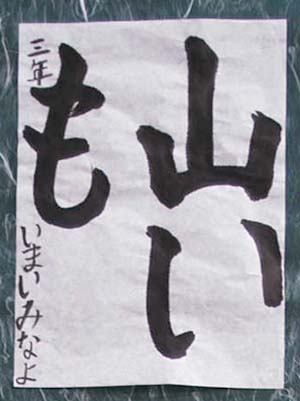 山い
も
三年 いまいみなよ